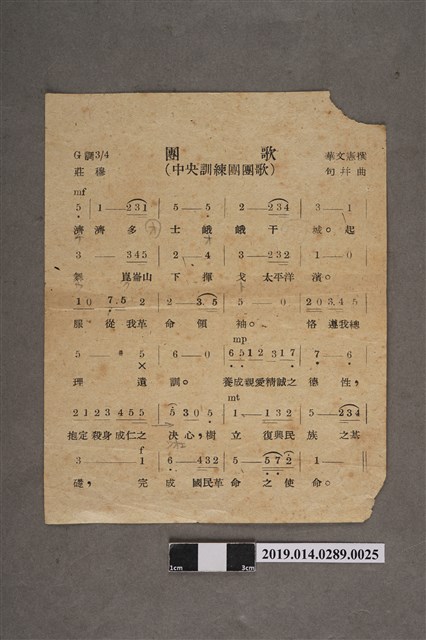 團歌
G調3/4
(中央訓練團團歌)
華文憲撰
莊穆
句井曲
mf
5 | 1 — 231 | 5 — 5 | 2 — 234 | 3 — 1
濟濟多士峨峨干城。起
3 — 345 | 2 — 4 | 3 — 232 | 1 — 0
舞崑崙山下揮戈太平洋濱。
10 7.5 2 | 2 — 3.5 | 5 — 0 | 203.45
服從我革命領袖。恪遵我總
mp
5 — 5 | 6 — 0 | 6512 317 | 7 — 6
理遺訓。養成親愛精誠之德性,
mt
2123 455 | 5305 | 1 — 132 | 5 — 234
抱定殺身成仁之決心,樹立復興民族之基
f
3 — 1 | 6 — 432 | 5 — 572 | 1 —
礎,完成國民革命之使命。
2019.014.0289.0025
1cm
3cm